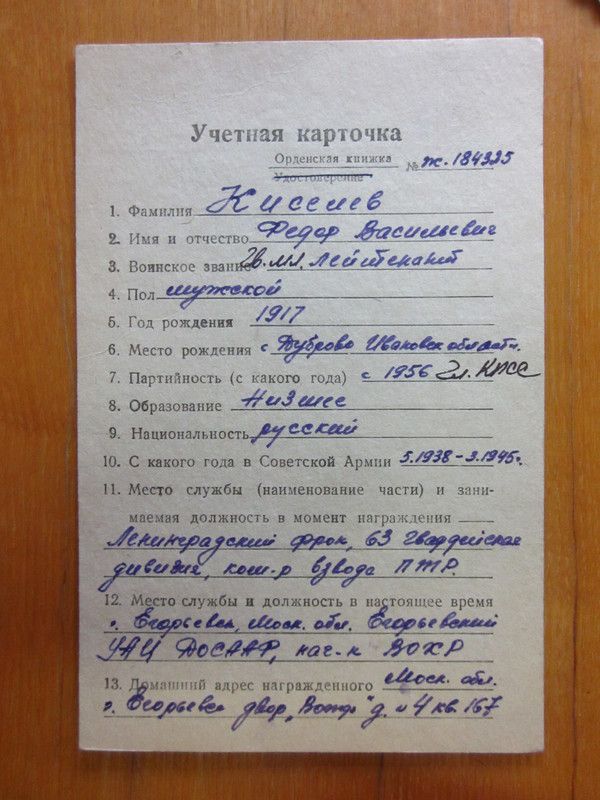 Учетная карточка
Орденская книжка
Удостоверение № Ж-184325
1. Фамилия Киселев
2. Имя и отчество Федор Васильевич
3. Воинское звание гв. мл. лейтенант
4. Пол мужской
5. Год рождения 1917
6. Место рождения с Дуброво Ивановск области.
7. Партийность (с какого года) с 1956 чл. КПСС
8. Образование Низшее
9. Национальность русский
10. С какого года в Советской Армии 5.1938-3.1945г.
11. Место службы (наименование части) и зани-
маемая должность в момент награждения
Ленинградский фрон, 63 гвардейская
дивизия, ком-р взвода ПТР.
12. Место службы и должность в настоящее время
г. Егорьевск, Моск. обл. Егорьевский
УАЦ ДОСААФ, нач-к ВОХР
13. Домашний адрес награжденного Моск. обл.
г. Егорьевск двор. д. 4 кв. 167